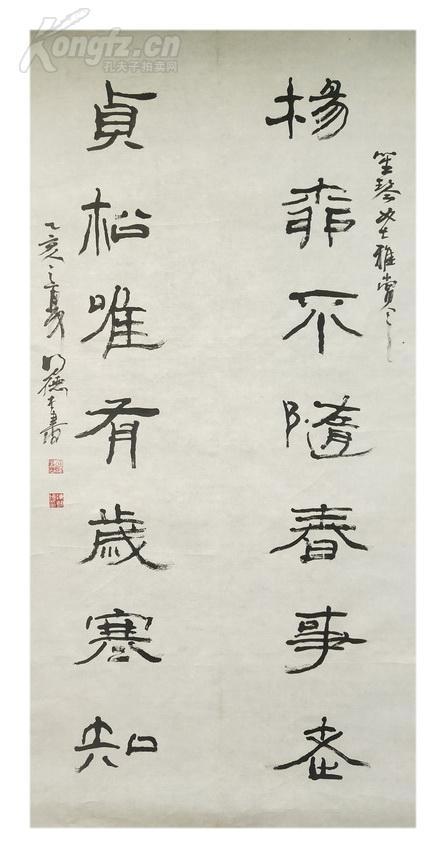 Kongfz.cn
孔夫子拍卖网
笙琴女士雅賞之
楊不隨春事老
貞松唯有歲寒知
乙亥之夏德書